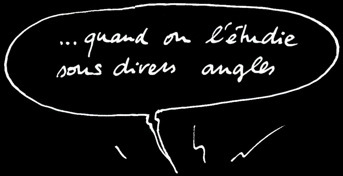 ...quand on l'étudie
sous divers angles